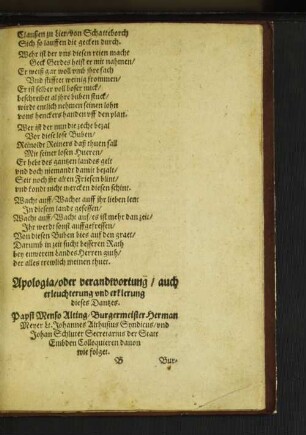 Clausen zu Lier/von Schatteborch
Sich so lauffen die gecken durch.
Wehr ist der vns diesen reien macht
Geck Gerdes heist er mit nahmen/
Er weiß gar woll vmb ihre sach
Vnd stifftet wenig frommen/
Er ist selber voll boser nuck/
beschreibet al ihre buben stuck/
würdt entlich nehmen seinen lohn
vons henckers handen vff den platz.
Wer ist der nun die zeche bezal
Vor diese lose Buben/
Reinoldt Reiners daß thuen sall
Mit seiner losen Hueren/
Er hebt des gantzen landes gelt
vnd doch niemandt damit bezalt/
Seit noch ihr alten Friesen blint/
vnd kondt nicht mercken diesen schint.
Wacht auff/ Wachet auff ihr lieben leut
In diesem lande gesessen/
Wacht auff/ Wach auf/ es ist mehr dan zeit/
Ihr werdt sonst auffgefressen/
Men diesen Buben dies auf den gratt/
Darumb in zeit sucht besseren Rath
bey eunerem Landes Herren gutt/
der alles trewlich meinen thuet.
Apologia/oder verandtwortung / auch
erleuchterung vnd erklerung
dieses Dantzes.
Papst Menso Alting/Burgermeister Herman
Meyer Lt. Johannes Althusius Syndicus/vnd
Johan Schluter Secretarius der Statt
Embden Colloquieren dauon
wie folget.
B Bur-